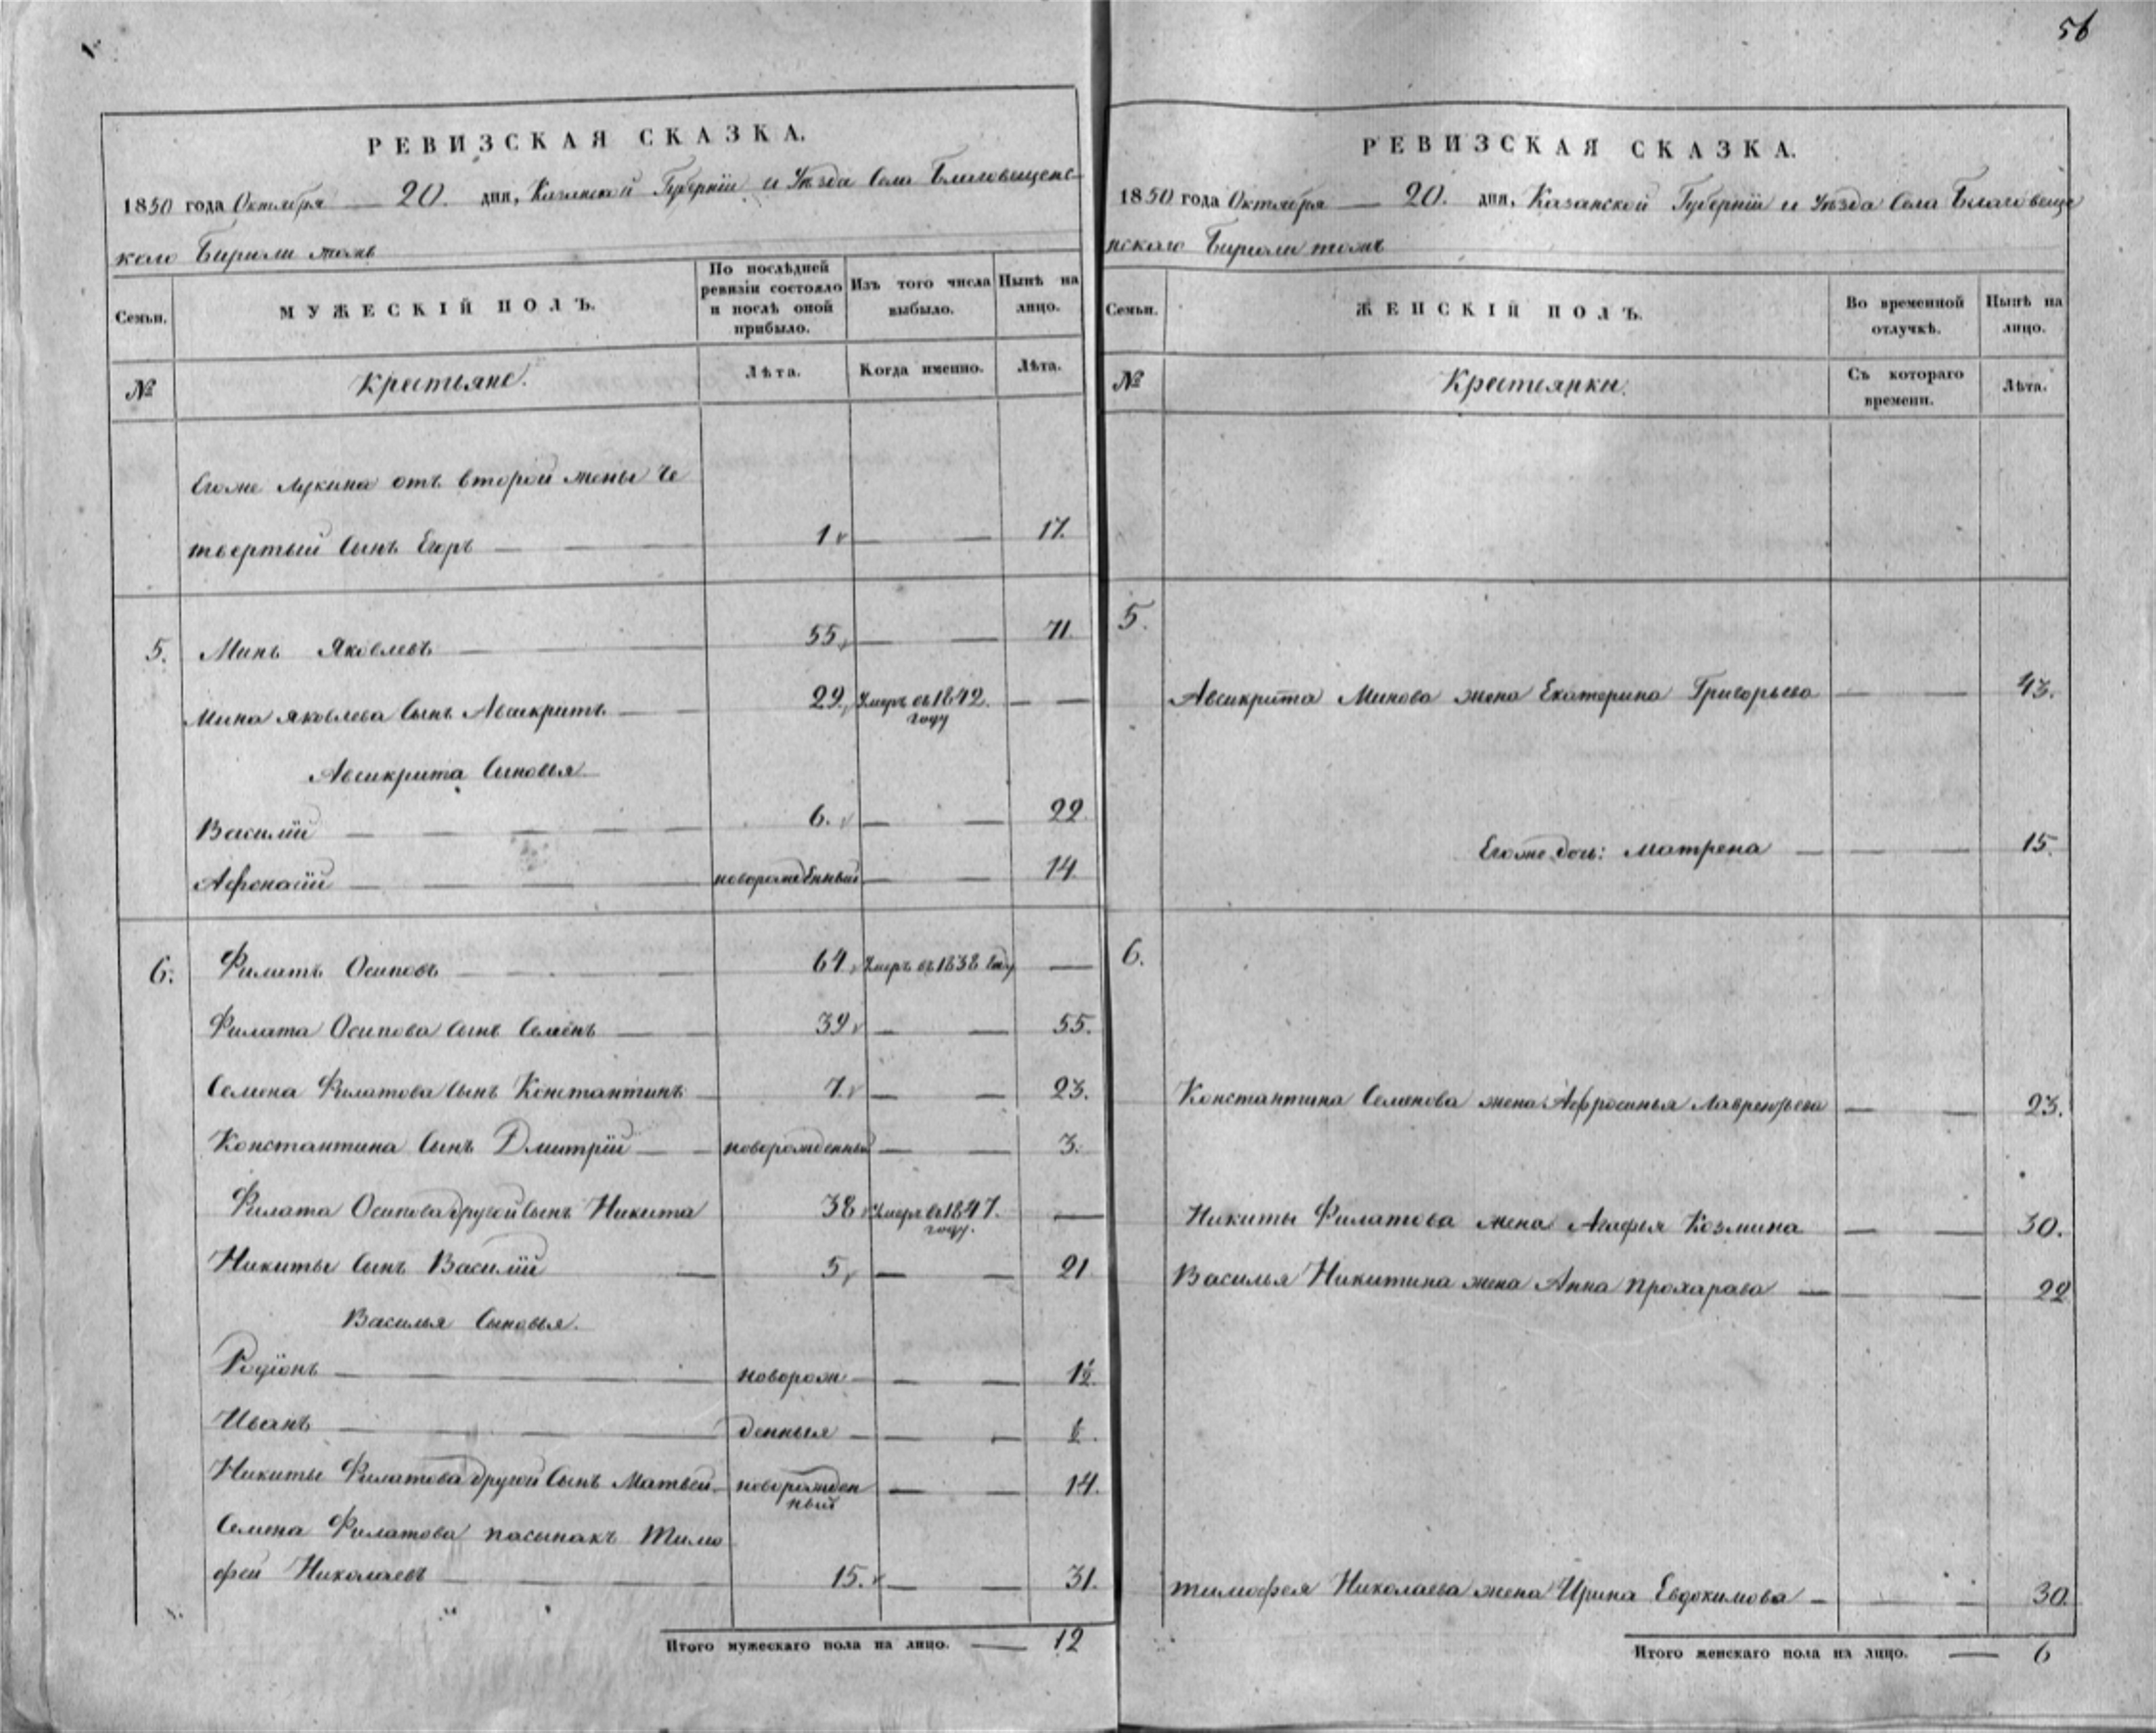 56
РЕВИЗСКАЯ СКАЗКА.
1850 года Октября — 20. дня, Казанской Губерніи и Уѣзда Села Благовещенс-
каго Бирюли тожъ
Семьи.
МУЖЕСКІЙ ПОЛЪ.
По послѣдней ревизіи состояло и послѣ оной прибыло.
Изъ того числа выбыло.
Нынѣ на лицо.
№
Крестьяне.
Лѣта.
Когда именно.
Лѣта.
Егоже Лукина отъ второй жены че
твертый сынъ Егоръ — — 1 — — 17.
5. Минъ Яковлевъ — 55 — — 71.
Мина Яковлева сынъ Авсикритъ — 29. Умеръ въ 1842. году — —
Авсикрита сыновья
Василій — — — — 6. — — 22
Афонасій — — — новорожденный — — 14
6. Филатъ Осиповъ — — — 64 Умеръ въ 1838 году —
Филата Осипова сынъ Семенъ — — 39 — — 55.
Семена Филатова сынъ Константинъ — 7. — — 23.
Константина сынъ Дмитрій — — новорожденный — — 3.
Филата Осипова другой сынъ Никита 38 Умеръ въ 1847. году. —
Никиты сынъ Василій — 5 — — 21
Василья сыновья.
Родіонъ — — новорож — — — 1½
Иванъ — — — денныя — — —
Никиты Филатова другой сынъ Матвей — новорожден ный — — 14.
Семена Филатова пасынакъ Тимо
фей Николаевъ — — 15. — — 31.
Итого мужескаго пола на лицо. — 12
РЕВИЗСКАЯ СКАЗКА.
1850 года Октября — 20. дня, Казанской Губерніи и Уѣзда Села Благовеще
нскаго Бирюли тожъ
Семьи.
ЖЕНСКІЙ ПОЛЪ.
Во временной отлучкѣ.
Нынѣ на лицо.
№
Крестьянки.
Съ котораго времени.
Лѣта.
5.
Авсикрита Минова жена Екатерина Григорьева — — 43.
Егоже дочь: Матрена — — — 15.
6.
Константина Семенова жена Афросинья Лаврентьева — — 23.
Никиты Филатова жена Агафья Козмина — — 30.
Василья Никитина жена Анна Прохарава — — — 22
Тимофея Николаева жена Ирина Евдокимова — — — 30.
Итого женскаго пола на лицо. — 6